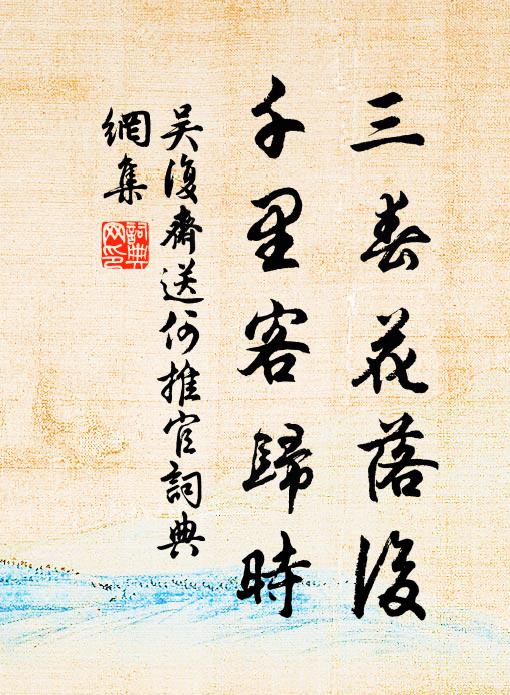 三春花落後
千里客歸時
吴復齋送何推官詞典
網集
詞典
网印